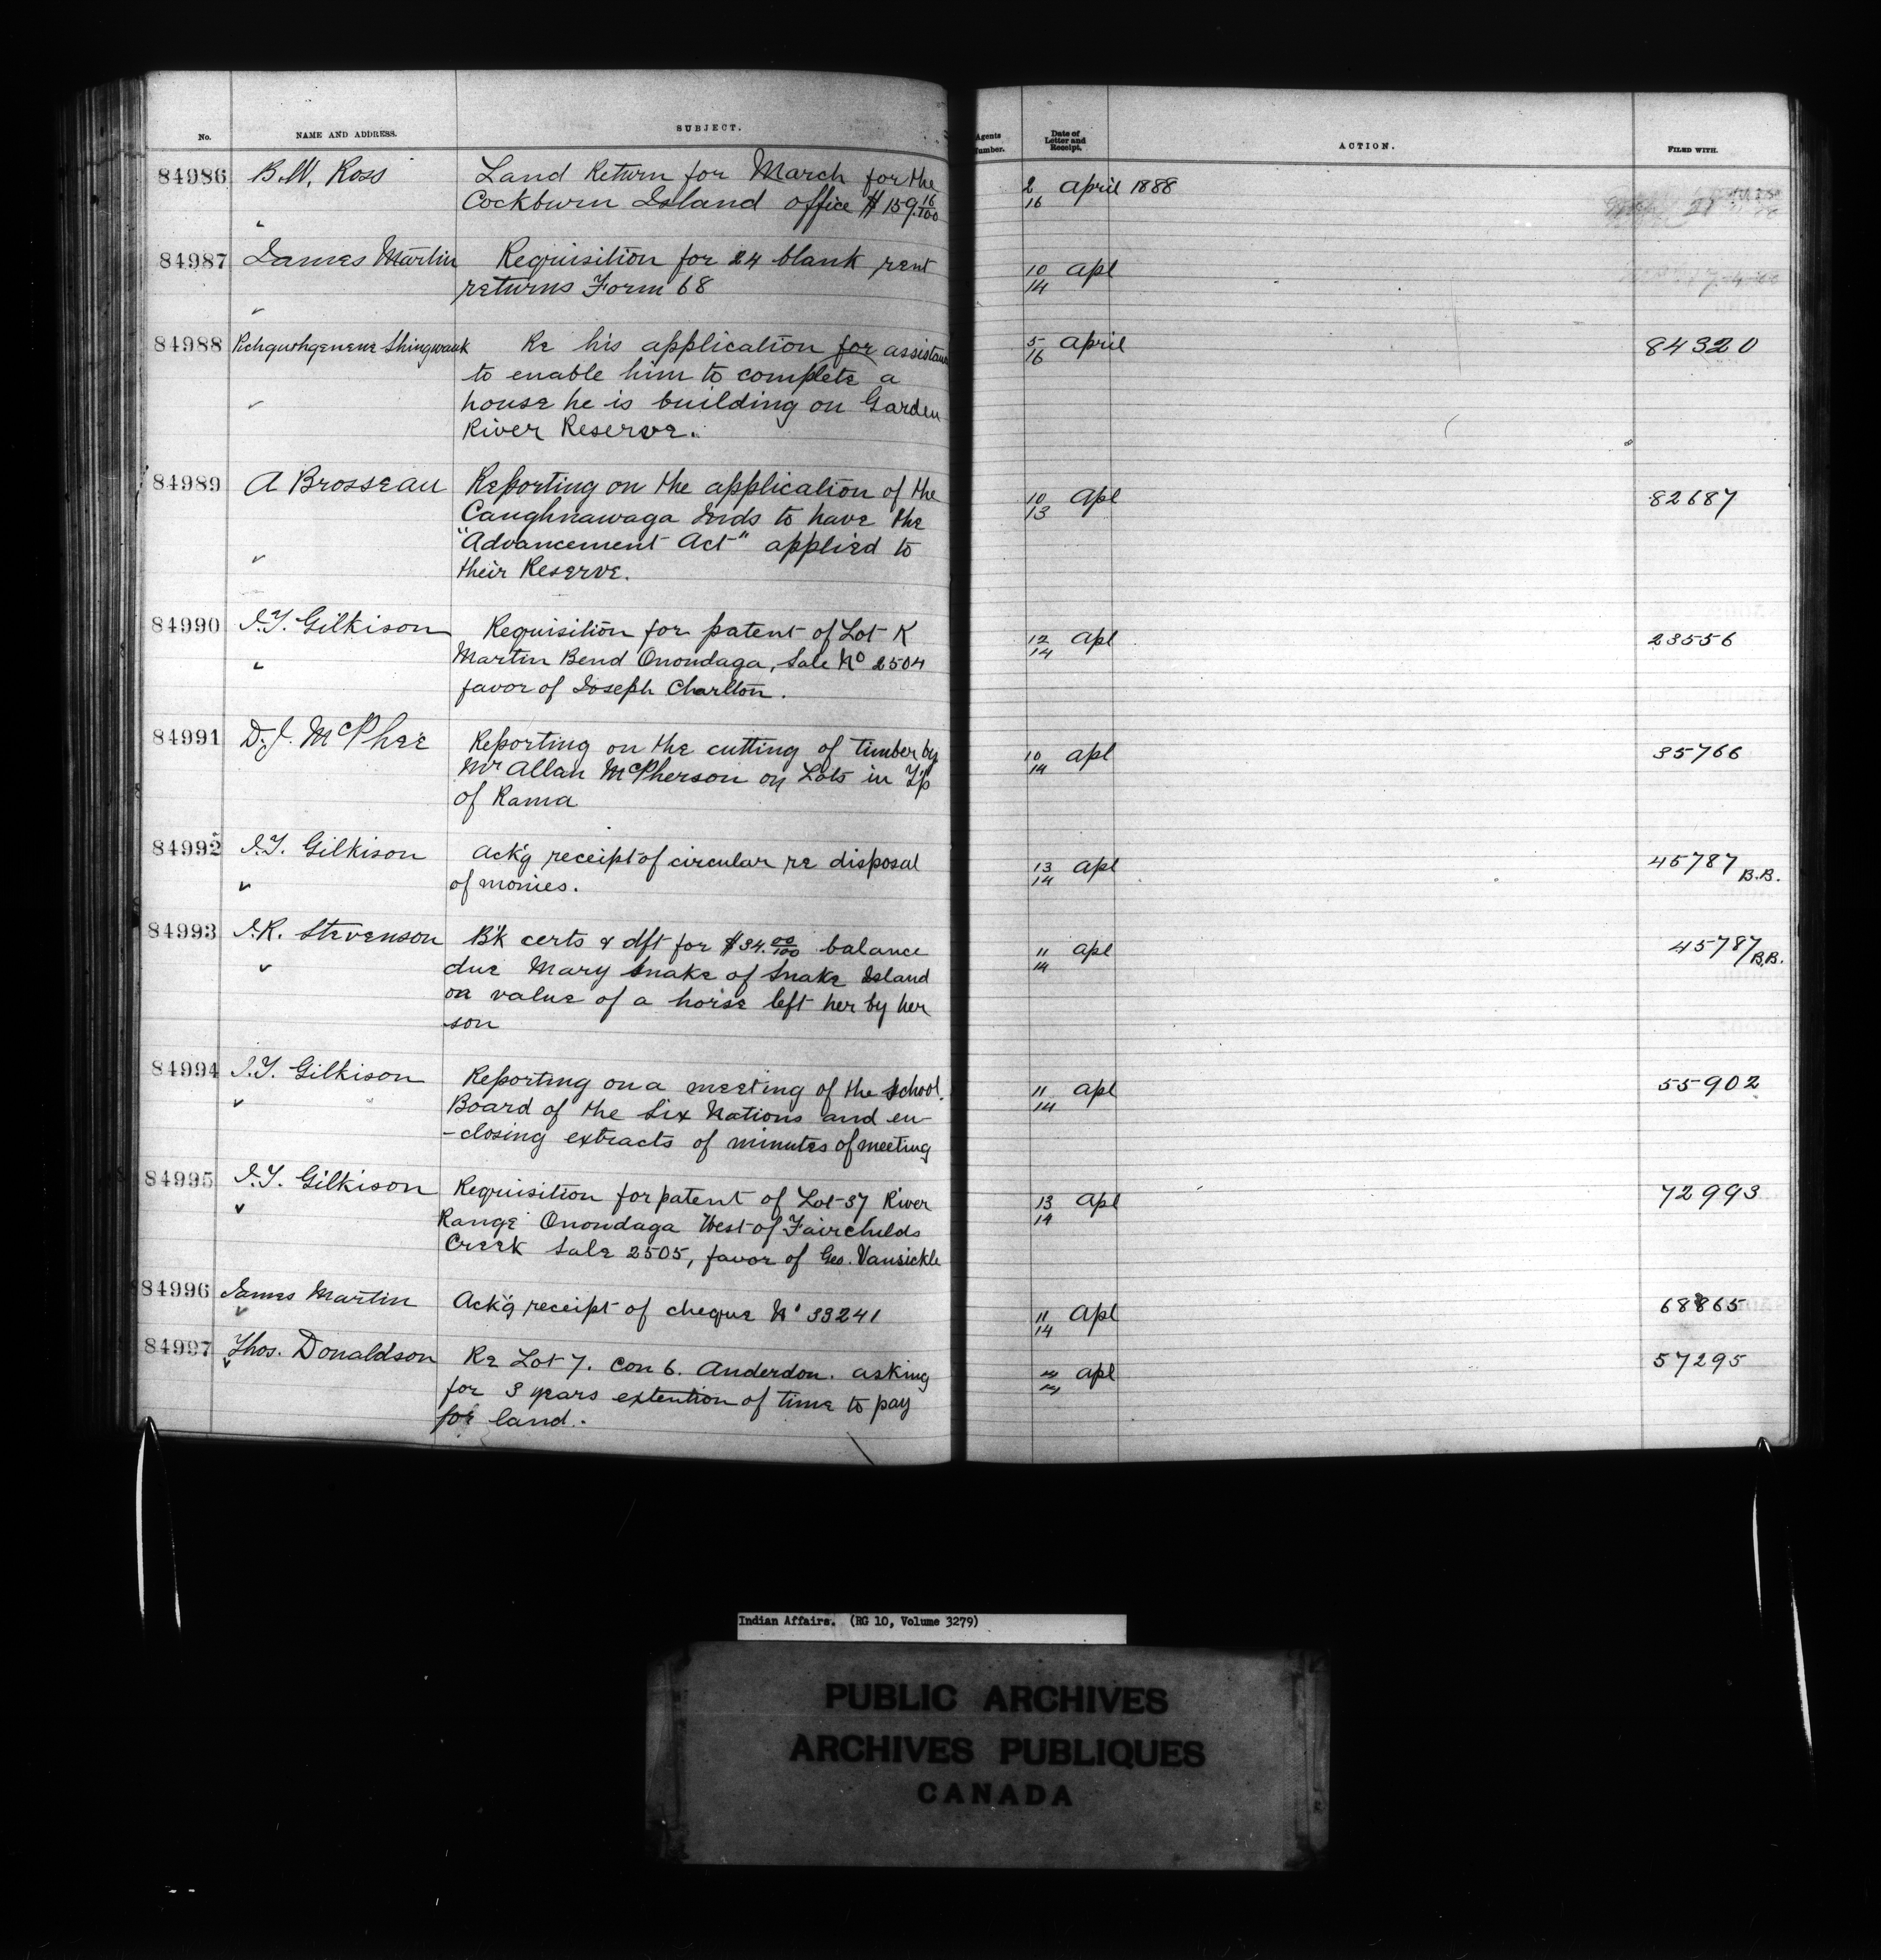 No. NAME AND ADDRESS. SUBJECT. Agents Number. Date of Letter and Receipt. ACTION. FILED WITH.
84986 B.W. Ross Land Return for March for the 2/16 April 1888
Cockburn Island office $159.16/100
84987 James Martin Requisition for 24 blank rent 10/14 Apl
returns Form 68
84988 Shingwauk Re his application for assistance 5/16 April 84320
to enable him to complete a
house he is building on Garden
River Reserve.
84989 A Brosseau Reporting on the application of the 10/13 Apl 82687
Caughnawaga Inds to have the
"Advancement Act" applied to
their Reserve.
84990 J.T. Gilkison Requisition for patent of Lot K 12/14 Apl 23556
Martin Bend Onondaga, Sale No 2504
favor of Joseph Charlton.
84991 D.J. McPhee Reporting on the cutting of timber by 10/14 Apl 35766
Mr Allan McPherson on Lots in T'p
of Rama
84992 J.T. Gilkison Ack'g receipt of circular re disposal 13/14 Apl 45787 B.B.
of monies.
84993 J.R. Stevenson B'k certs & dft for $34.00/100 balance 11/14 Apl 45787 B.B.
due Mary Snake of Snake Island
on value of a horse left her by her
son
84994 J.T. Gilkison Reporting on a meeting of the School 11/14 Apl 55902
Board of the Six Nations and en-
-closing extracts of minutes of meeting
84995 J.T. Gilkison Requisition for patent of Lot 37 River 13/14 Apl 72993
Range Onondaga West of Fairchilds
Creek Sale 2505, favor of Geo. Vansickle
84996 James Martin Ack'g receipt of cheque No 33241 11/14 Apl 68865
84997 Thos. Donaldson Re Lot 7. Con 6. Anderdon. asking Apl 57295
for 3 years extention of time to pay
for land.
Indian Affairs. (RG 10, Volume 3279)
PUBLIC ARCHIVES
ARCHIVES PUBLIQUES
CANADA